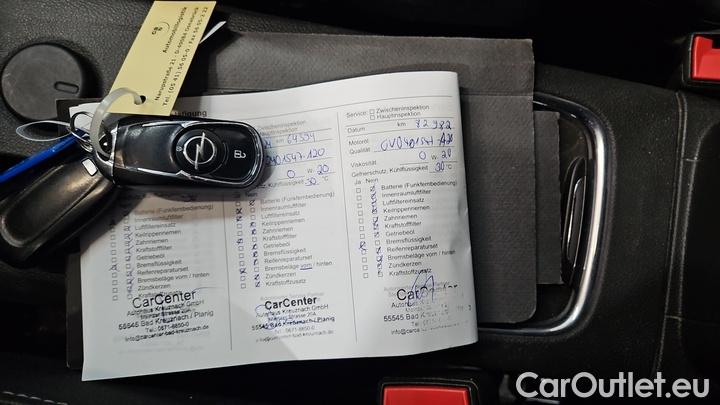 ca
Automobillogistik
Narupstraße 21 · D-49084 Osnabrück
Tel. (05 41) 56 05-0 · Fax 56 05-2 22
km 64394
0 W- 20
Kühlflüssigkeit 30 °C
Batterie (Funkfernbedienung)
Innenraumluftfilter
Luftfiltereinsatz
Keilrippenriemen
Zahnriemen
Kraftstofffilter
Getriebeöl
Bremsflüssigkeit
Reifenreparaturset
Bremsbeläge vorn / hinten
Zündkerzen
Kraftstoffzusatz
CarCenter
Autohaus Kreuznach GmbH
Mainzer Strasse 20A
55545 Bad Kreuznach / Planig
Tel.: 0671-8850-0
info@carcenter-bad-kreuznach.de
Batterie (Funkfernbedienung)
Innenraumluftfilter
Luftfiltereinsatz
Keilrippenriemen
Zahnriemen
Kraftstofffilter
Getriebeöl
Bremsflüssigkeit
Reifenreparaturset
Bremsbeläge vorn / hinten
Zündkerzen
Kraftstoffzusatz
CarCenter
Autohaus Kreuznach GmbH
Mainzer Strasse 20A
55545 Bad Kreuznach / Planig
Tel.: 0671-8850-0
info@carcenter-bad-kreuznach.de
Service: Zwischeninspektion
Hauptinspektion
Datum km 82982
Motoröl
Qualität
Viskosität 0 W- 20
Gefrierschutz, Kühlflüssigkeit 30 °C
Ja Nein
Batterie (Funkfernbedienung)
Innenraumluftfilter
Luftfiltereinsatz
Keilrippenriemen
Zahnriemen
Kraftstofffilter
Getriebeöl
Bremsflüssigkeit
Reifenreparaturset
Bremsbeläge vorn / hinten
Zündkerzen
Kraftstoffzusatz
Autohaus
55545 Bad
Tel.:
info@carce
CarOutlet.eu